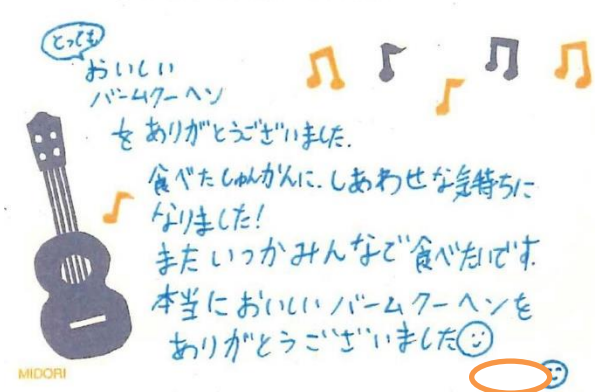 とっても
おいしい
バームクーヘン
をありがとうございました.
食べたしゅんかんに.しあわせな気持ちに
なりました!
またいつかみんなで食べたいです.
本当においしいバームクーヘンを
ありがとうございました
MIDORI